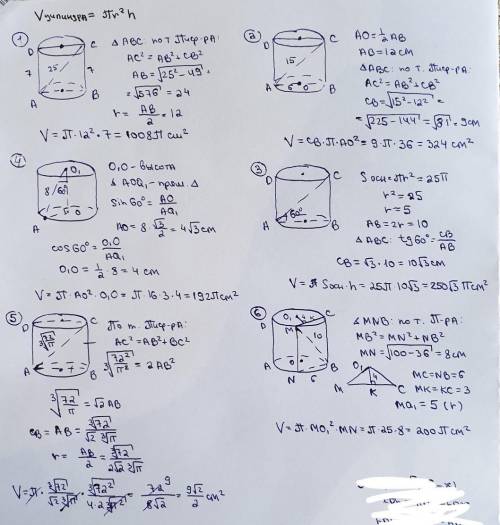 Vцилиндра = πr²h
①
D C
7 25 7
A B
△ABC: по т. Пиф-ра:
AC² = AB² + CB²
AB = √25² - 49 =
= √576 = 24
r = AB/2 = 12
V = π·12²·7 = 1008π см²
②
D C
15
A 6 0 B
AO = ½ AB
AB = 12 см
△ABC: по т. Пиф-ра:
AC² = AB² + CB²
CB = √15² - 12² =
= √225 - 144 = √81 = 9 см
V = CB·π·AO² = 9·π·36 = 324 см²
④
O₁
8 60°
A 0 B
O₁O - высота
△ AOO₁ - прям. △
sin 60° = AO/AO₁
AO = 8·√3/2 = 4√3 см
cos 60° = O₁O/AO₁
O₁O = ½·8 = 4 см
V = π·AO²·O₁O = π·16·3·4 = 192π см²
③
D C
60°
A B
S осн = πr² = 25π
r² = 25
r = 5
AB = 2r = 10
△ABC: tg 60° = CB/AB
CB = √3·10 = 10√3 см
V = π S осн·h = 25π·10√3 = 250√3 π см²
⑤
D C
A B
По т. Пиф-ра:
AC² = AB² + BC²
∛72²/π² = 2AB²
∛72/π = √2 AB
CB = AB = ∛72/√2 ∛π
r = AB/2 = ∛72/2√2 ∛π
V = π·∛72/√2 ∛π·∛72²/4·2 ∛π² = 72 9/8√2 = 9√2/2 см²
⑥
D O₁ 4 K C
M
10
A 0 B
N 6
△ MNB: по т. П-ра:
MB² = MN² + NB²
MN = √100 - 36 = 8 см
O₁
4
M K C
MC = NB = 6
MK = KC = 3
MO₁ = 5 (r)
V = π·MO₁²·MN = π·25·8 = 200π см²